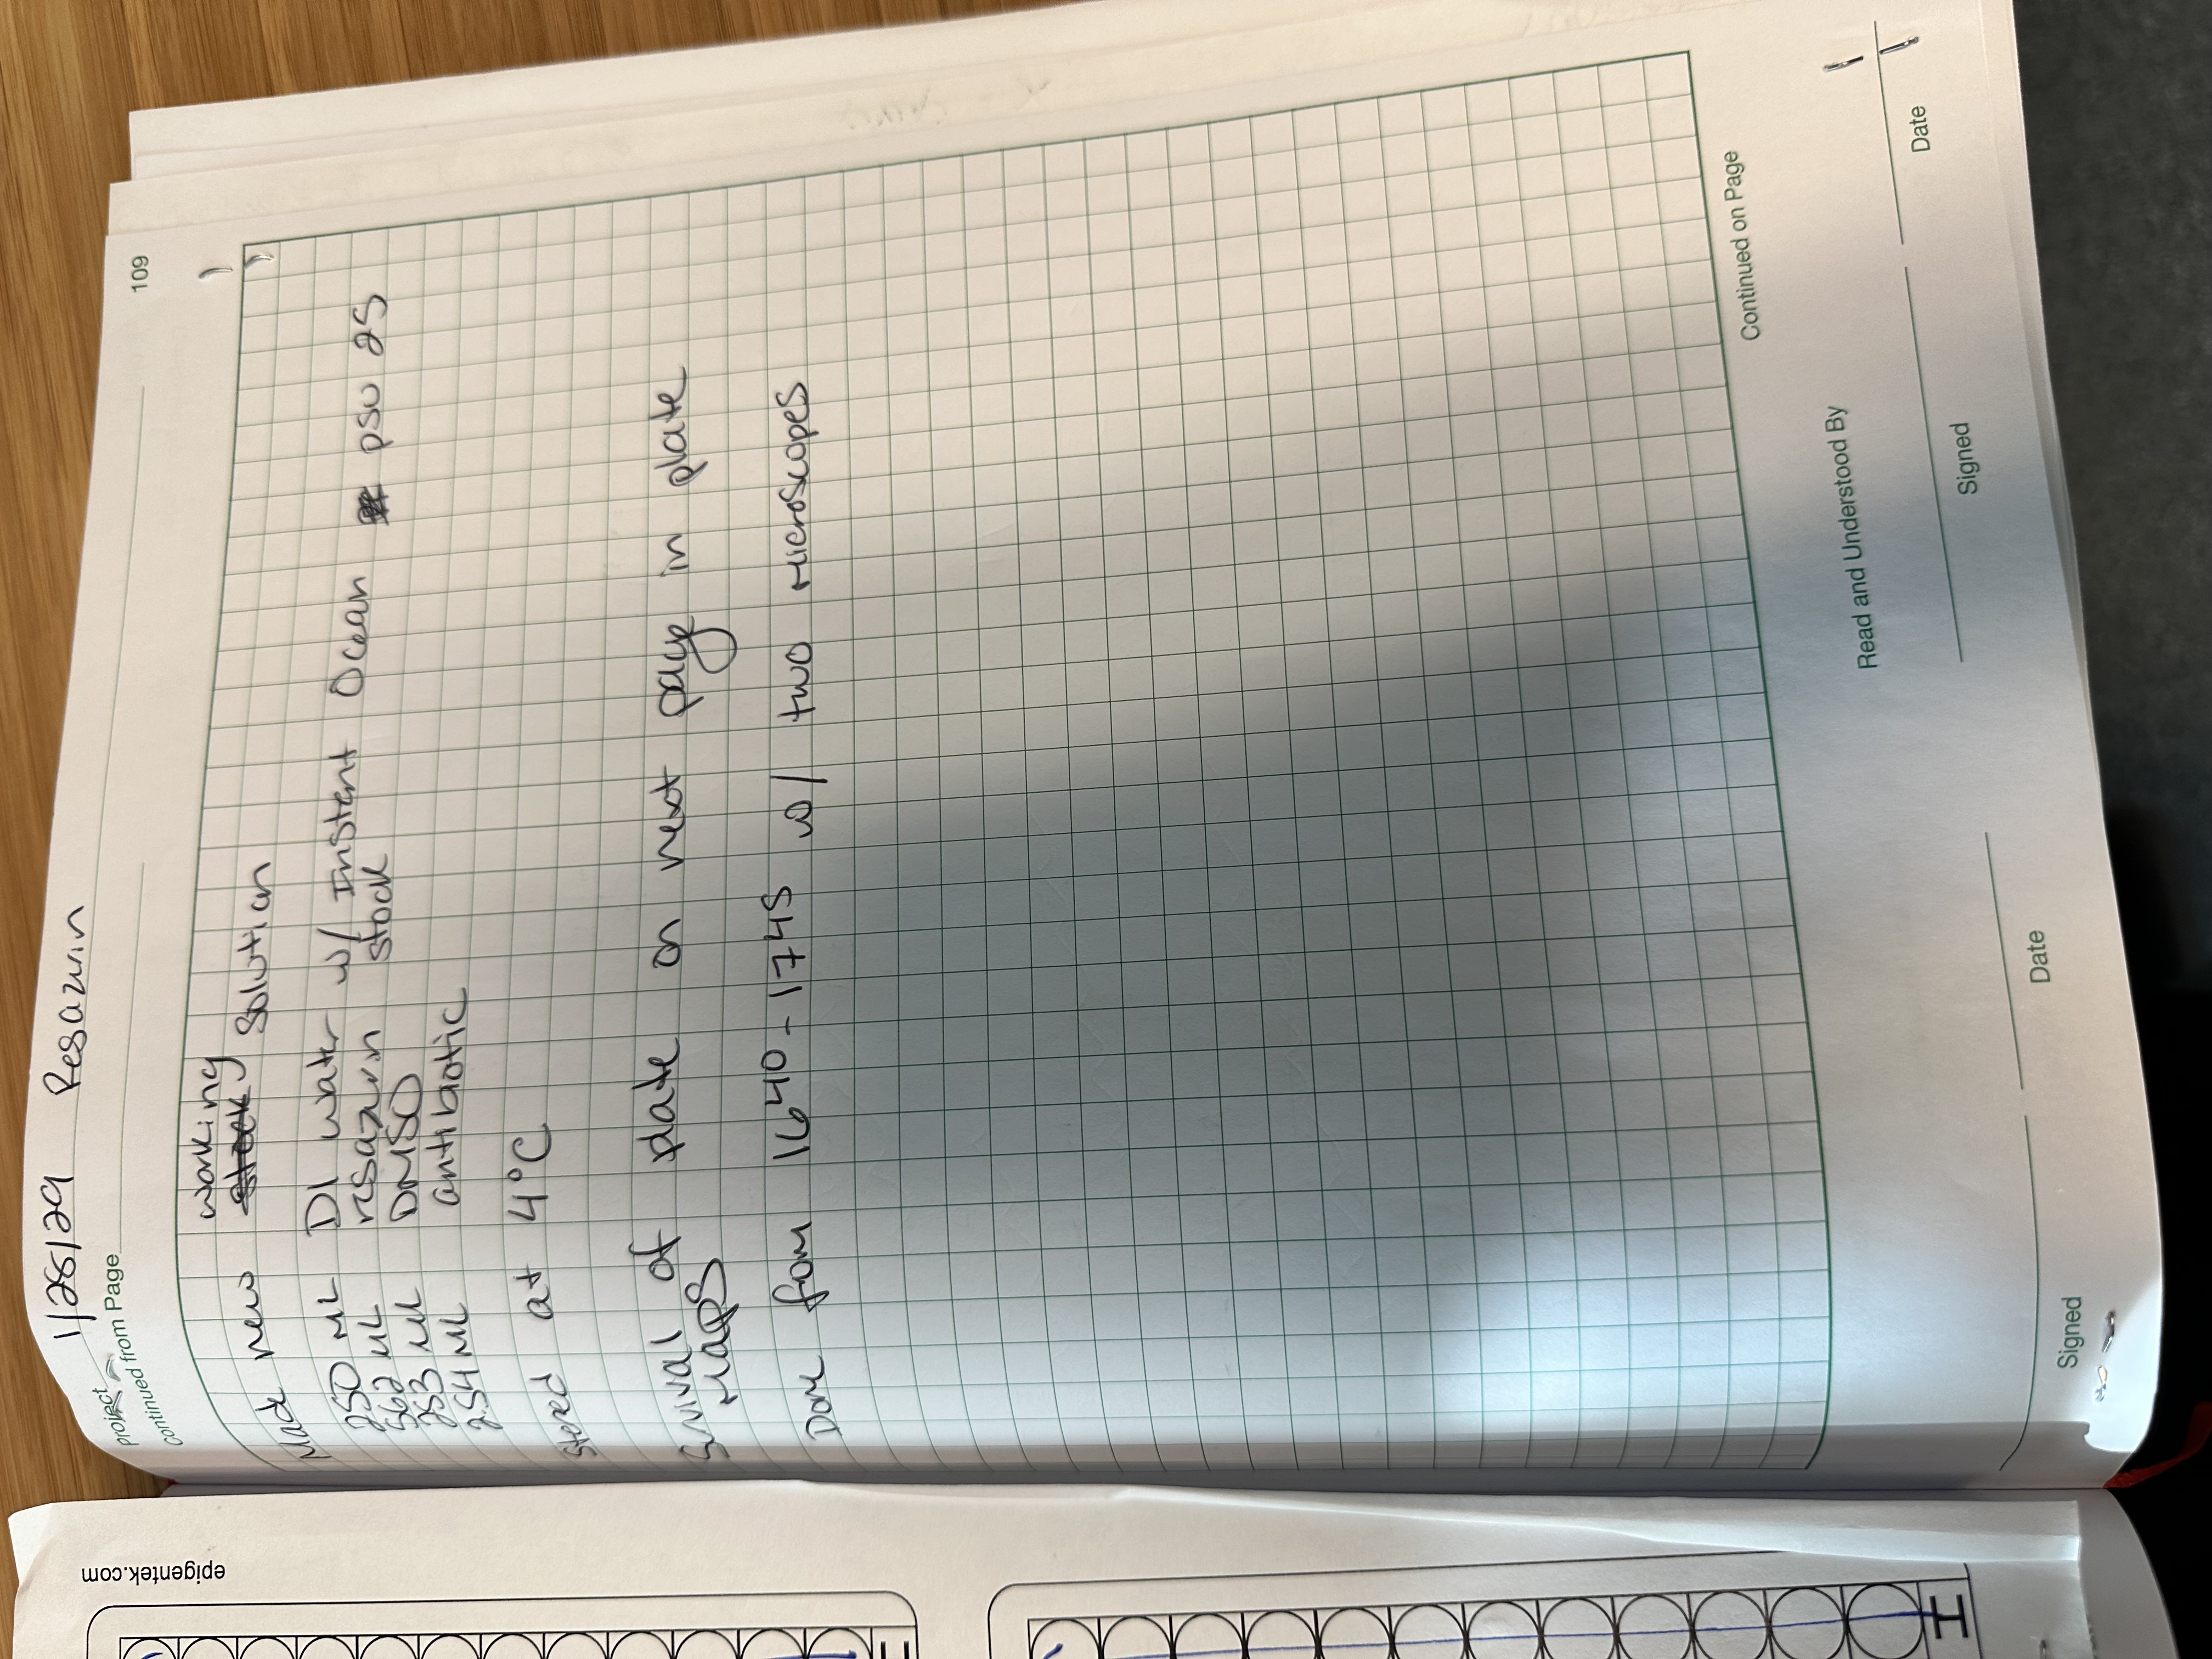 epigentek.com
H
1/28/29 Resazurin
Project
Continued from Page
109
working
Made new stock solution
250 mL DI water w/ Instant Ocean psu 25
562 uL resazurin stock
253 uL DMSO
254 mL antibiotic
stored at 4°C
Survival of plate on next page in plate
maps
Done from 1640 - 1745 w/ two microscopes
Continued on Page
Read and Understood By
Signed
Date
Signed
Date